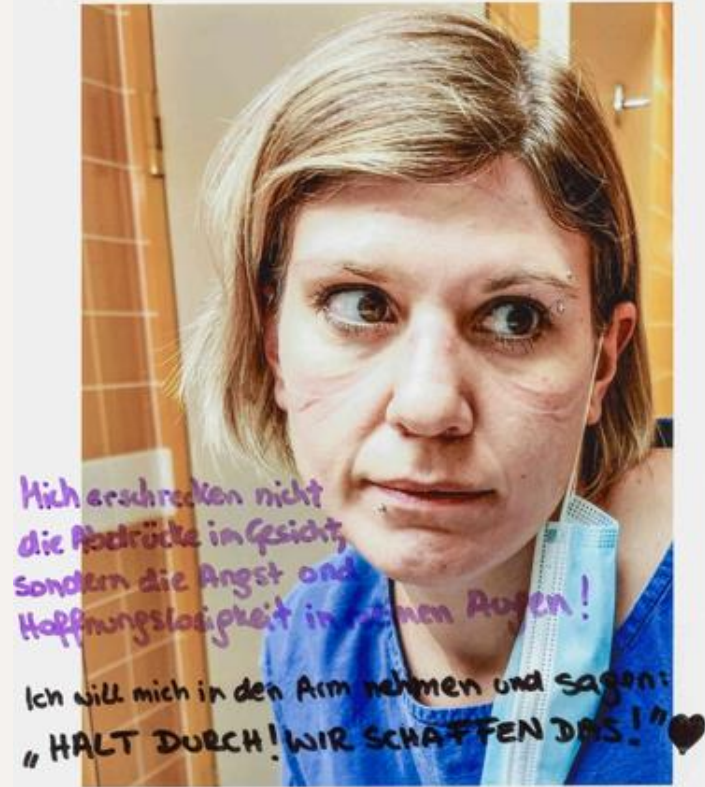 Mich erschrecken nicht
die Abdrücke im Gesicht,
sondern die Angst und
Hoffnungslosigkeit in meinen Augen!
Ich will mich in den Arm nehmen und sagen:
„HALT DURCH! WIR SCHAFFEN DAS!" ♥